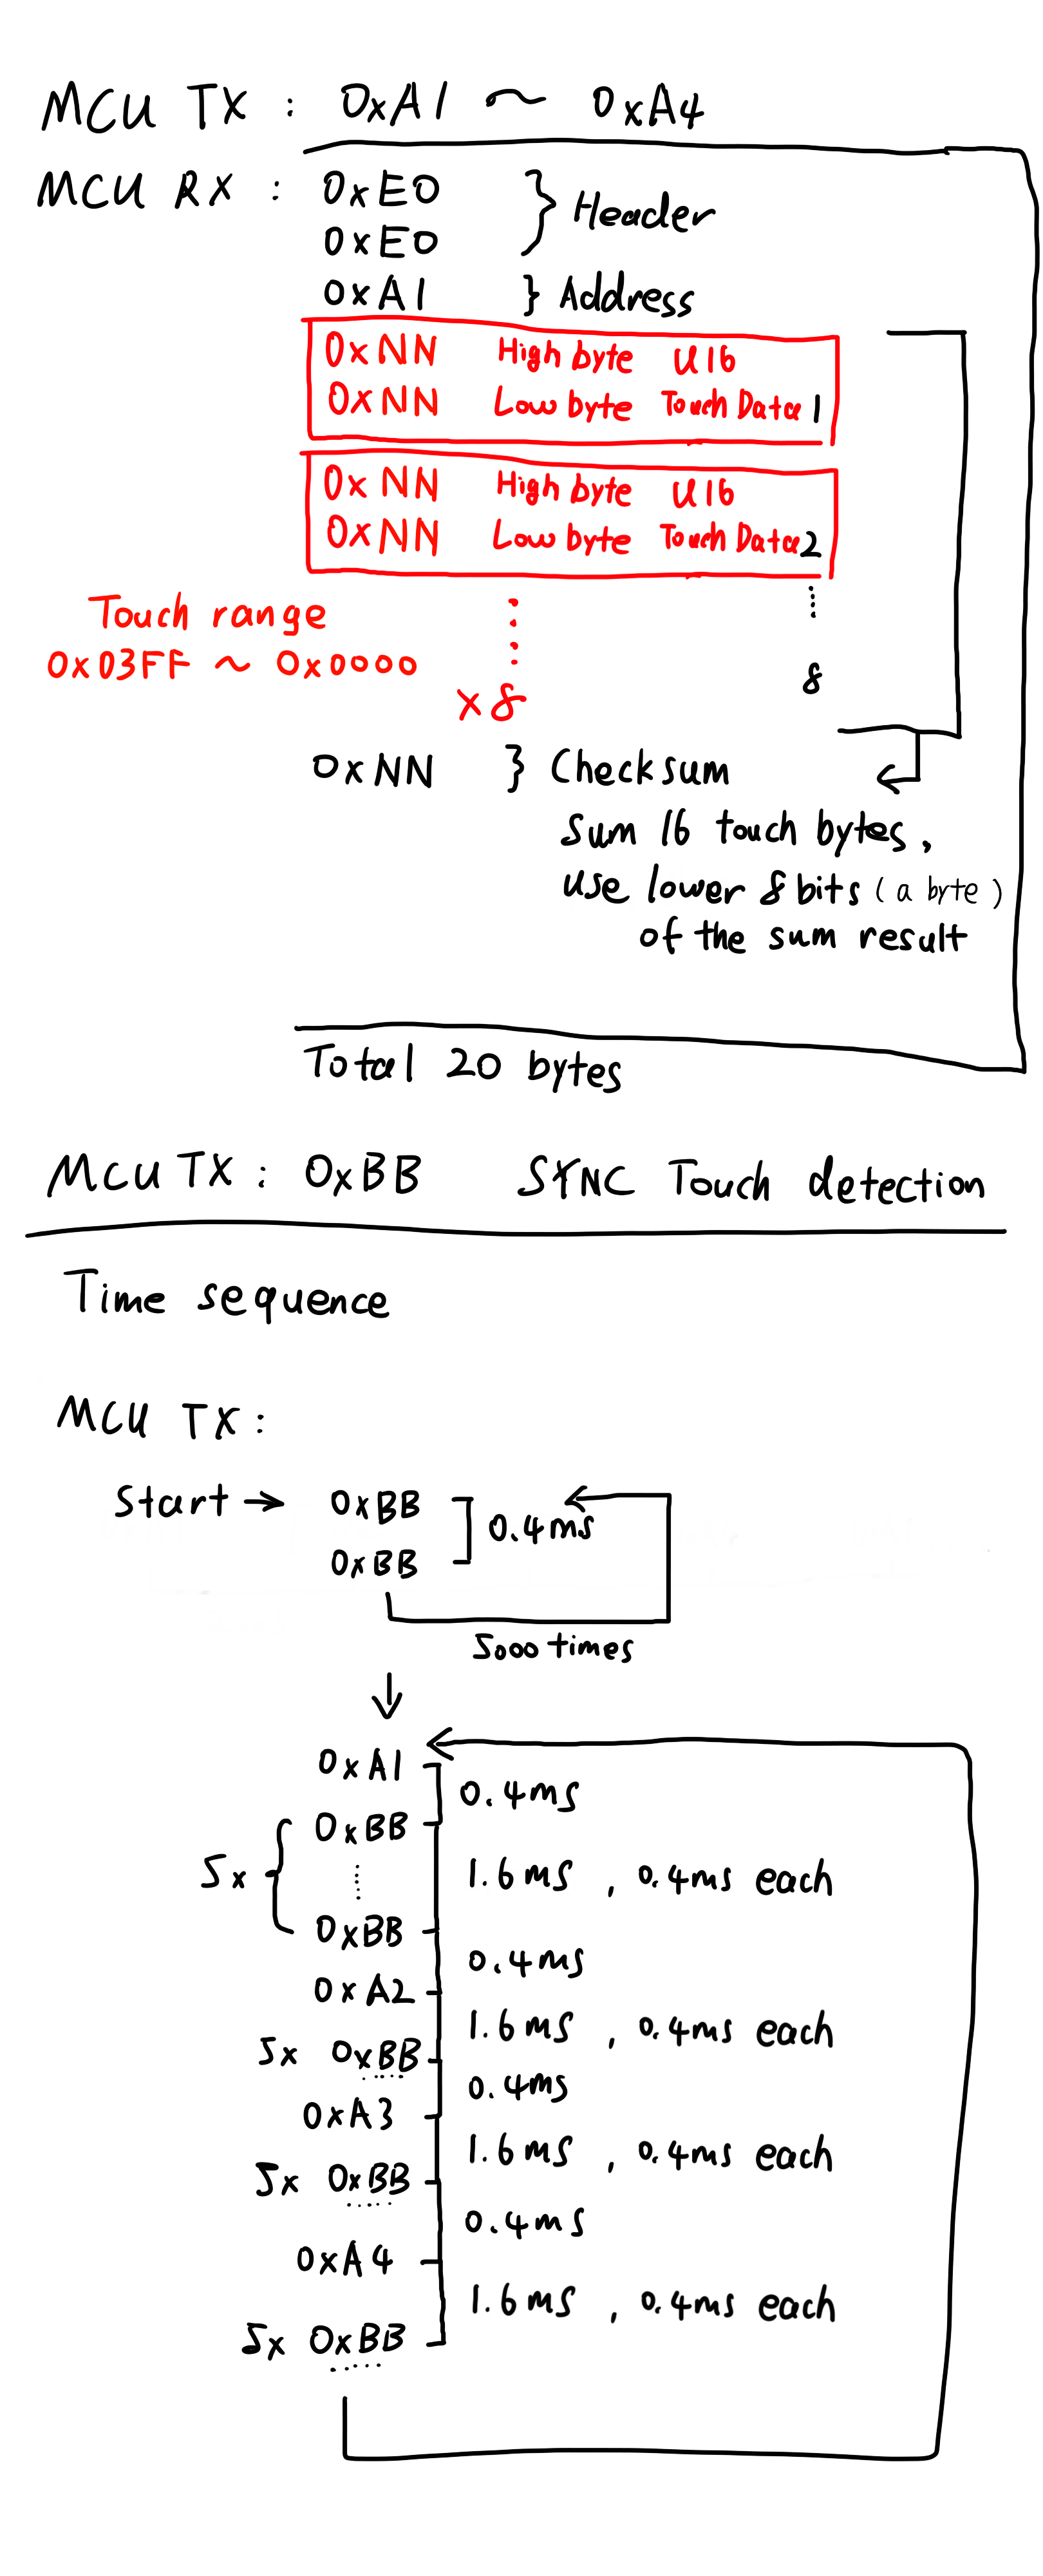 MCU TX : 0xA1 ~ 0xA4
MCU RX : 0xE0 } Header
0xE0
0xA1 } Address
0xNN High byte U16
0xNN Low byte Touch Data 1
0xNN High byte U16
0xNN Low byte Touch Data 2
Touch range
0x03FF ~ 0x0000
x8
8
0xNN } Checksum
Sum 16 touch bytes,
use lower 8 bits (a byte)
of the sum result
Total 20 bytes
MCU TX : 0xBB SYNC Touch detection
Time sequence
MCU TX :
Start → 0xBB
0.4ms
0xBB
5000 times
↓
0xA1
0.4ms
0xBB
5x
1.6ms , 0.4ms each
0xBB
0.4ms
0xA2
1.6ms , 0.4ms each
5x 0xBB
0.4ms
0xA3
1.6ms , 0.4ms each
5x 0xBB
0.4ms
0xA4
1.6ms , 0.4ms each
5x 0xBB